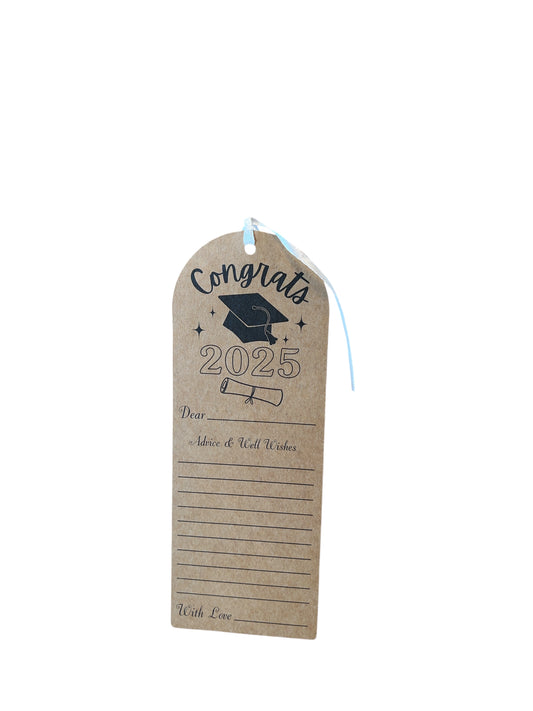 Congrats
2025
Dear
Advice & Well Wishes
With Love